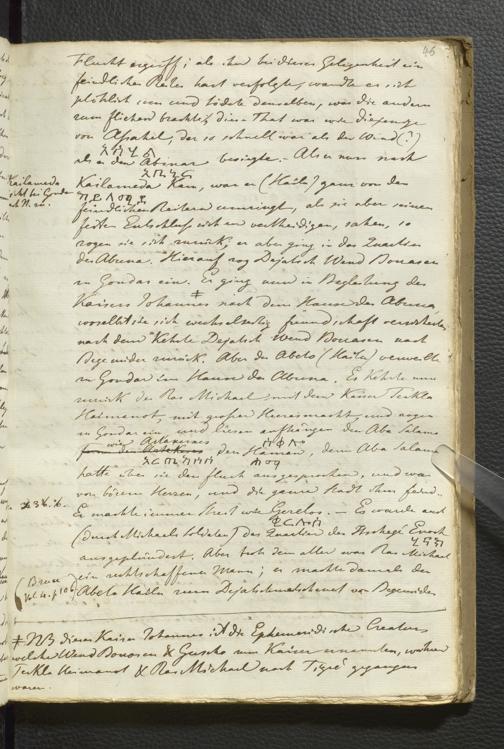 46
Flucht ergriff; als ihn bei dieser Gelegenheit ein
feindlicher Reiter hart verfolgte, wandte er sich
plötzlich um und tödete denselben, was die andern
zum fliehen brachte; diese That war wie diejenige
von Asahel, der so schnell war als der Wind (?)
als er den Abinar besiegte. Als er nun nach
Kailameda kam, war er (Hailu) ganz von den
feindlichen Reitern umringt, als sie aber seinen
festen Entschluss sich zu vertheidigen, sahen, so
zogen sie sich zurück, er aber ging in das Quartier
des Abuna. Hierauf zog Dejatsch Wend Bouasen
in Gondar ein. Er ging nun in Begleitung des
Kaisers Johannes nach dem Hause des Abuna
woselbst sie sich wechselseitig freundschaft
nach dem Kehrte Dejatsch Wend Bouasen nach
Begemider zurück. Aber der Abeto (Hailu) verweilte
in Gondar im Hause des Abuna. Es Kehrte nun
zurück der Ras Michael mit dem Kaiser Teckla
Haimanot, mit grosser Heeresmacht, und zogen
in Gondar ein und liessen aufhängen den Abu Salama
wie den
hatte über sie den fluch ausgesprochen, und war
von bösem Herzen, und die ganze Stadt ihm feind
Er machte immer Streit wie Gerelos. — Es wurde auch
(durch Michaels Soldaten) das Quartier des Etschege Enoch
ausgeplündert. Aber trotz dem allen war Ras Michael
ein rechtschaffener Mann; er machte damals den
Abeto Hailu zum Dejatschmatschenet von Begemider
Kailameda
bei Gondar
(Bruce
Vol. 4. p 106)
NB dieser Kaiser Johannes ist die Ephemeridische Creatur,
welche Wend Bouasen & Guscho zum Kaiser ernannten, während
Teckla Heimanot & Ras Michael nach Tigré gegangen
waren.